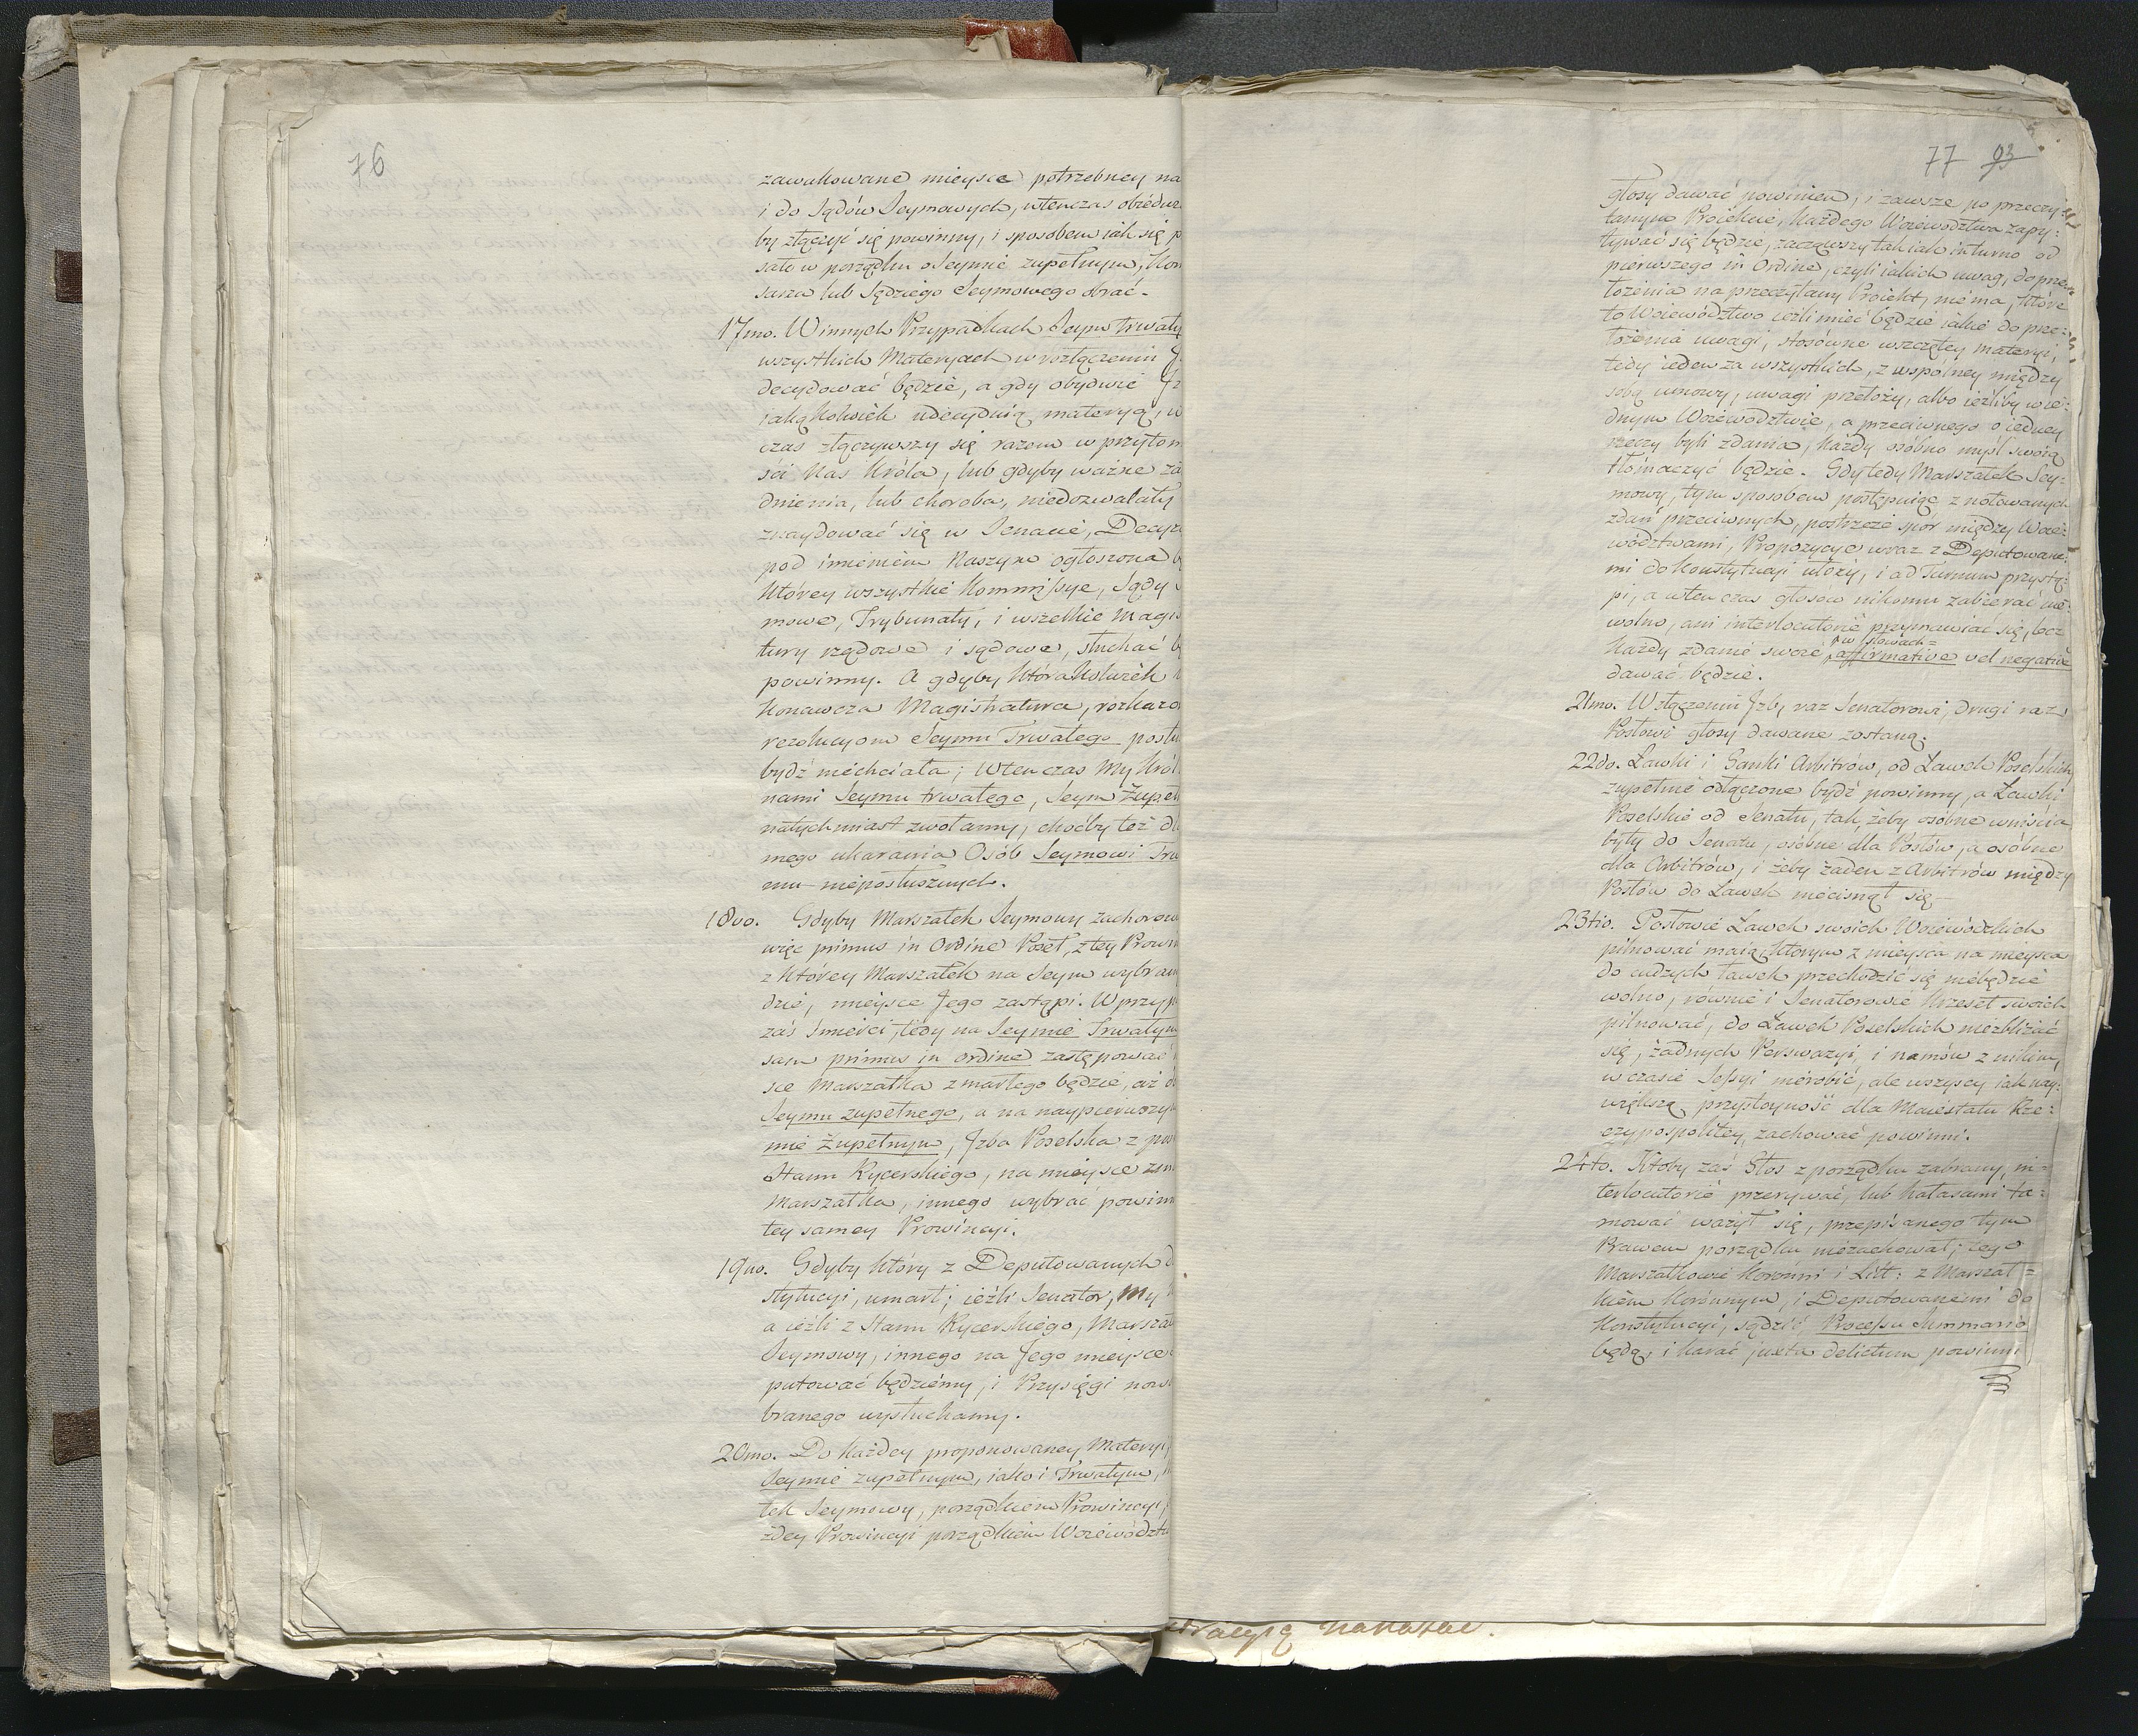 76
zawakowane mieysce potrzebney na
i do Sądów Seymowych, wtenczas obiedwie
by złączyć się powinny, i sposobem iak się p
sało w porządku o Seymie zupełnym, Kom
sarza lub Sędziego Seymowego obrać.
17mo. W innych Przypadkach Seym trwały
wszystkich Materyach w rozłączeniu J
decydować będzie, a gdy obydwie Iz
iakążkolwiek udecydują materyą, w
czas złączywszy się razem w przytom
ści Nas Króla, lub gdyby ważne za
dnienia, lub choroba, niedozwalały
znaydować się w Senacie, Decyz
pod imieniem Naszym ogłoszona b
którey wszystkie Kommissye, Sądy
mowe, Trybunały, i wszelkie Magis
tury rządowe i sądowe, słuchać b
powinny. A gdyby którakolwiek
konawcza Magistratura, rozkazo
rezolucyom Seymu Trwałego posłu
bydź niechciała; wtenczas My Król
nami Seymu trwałego, Seym Zupeł
natychmiast zwołamy, choćby też dl
mego ukarania Osób Seymowi Trw
emu nieposłusznych.
18vo. Gdyby Marszałek Seymowy zachorow
więc primus in Ordine Poseł, z tey Prowi
z którey Marszałek na Seym wybran
dzie, mieysce Jego zastąpi. W przyp
zaś śmierci, tedy na Seymie Trwałym
sam primus in ordine zastępować
sce Marszałka zmarłego będzie, aż d
Seymu zupełnego, a na naypierwszy
mie Zupełnym, Izba Poselska z po
Stanu Rycerskiego, na mieysce zm
Marszałka, innego wybrać powinn
tey samey Prowincyi.
19no. Gdyby który z Deputowanych d
stytucyi, umarł; ieżli Senator, My
a ieżli z Stanu Rycerskiego, Marszał
Seymowy, innego na Jego mieysce
putować będziemy, i Przysięgi now
branego wysłuchamy.
20mo. Do każdey proponowaney Materyi,
Seymie zupełnym, iako i Trwałym,
łek Seymowy, porządkiem Prowincyi,
żdey Prowincyi porządkiem Woiewództw
77 93
głosy dawać powinien, i zawsze po przeczy:
tanym Proiekcie, każdego Woiewództwa zapy:
tywać się będzie, zacząwszy tak iak in turno od
pierwszego in Ordine, czyli iakich uwag, do prze
łożenia na przeczytany Proiekt, niema, które
to Woiewództwo ieżli mieć będzie iakie do prze:
łożenia uwagi, stosówne wszczętey materyi,
tedy ieden za wszystkich, z wspólney między
sobą umowy, uwagi przełoży, albo ieżliby w ie:
dnym Woiewództwie, a przeciwnego o iedney
rzeczy byli zdania, każdy osóbno myśl swoią
tłómaczyć będzie. Gdy tedy Marszałek Sey:
mowy, tym sposobem postępuiąc z notowanych
zdań przeciwnych, postrzeże spór między Woie:
wództwami, Propozycye wraz z Deputowane:
mi do Konstytucyi ułoży, i ad Turnum przystą:
pi, a wtenczas głosow nikomu zabierać nie
wolno, ani interlocutorie przymawiać się, lecz
w słowach
każdy zdanie swoie affirmative vel negative
dawać będzie.
21mo. W złączeniu Izb, raz Senatorowi, drugi raz
Posłowi głosy dawane zostaną.
22do. Ławki i Ganki Arbitrów, od Ławek Poselskich
zupełnie odłączone bydź powinny, a Ławki
Poselskie od Senatu, tak, żeby osóbne wniścia
były do Senatu, osóbne dla Posłów, a osóbne
dla Arbitrów, i żeby żaden z Arbitrów między
Posłów do Ławek niecisnął się
23tio. Posłowie Ławek swoich Woiewódzkich
pilnować maią, którym z mieysca na mieysca
do cudzych ławek przechodzić się niebędzie
wolno, równie i Senatorowie Krzeseł swoich
pilnować, do Ławek Poselskich niezbliżać
się, żadnych Perswazyi, i namów z nikim,
w czasie Sessyi nierobić, ale wszyscy iak nay:
większą przystoyność dla Maiestatu Rze:
czypospolitey, zachować powinni.
24to. Ktoby zaś Głos z porządku zabrany, in=
terlocutorie przerywać, lub hałasami ta:
mować ważył się, przepisanego tym
Prawem porządku niezachował; tego
Marszałkowie Koronni i Litt: z Marszał=
kiem Koronnym, i Deputowanemi do
Konstytucyi, sądzić Processu Summario
będą, i karać juxta delictum powinni
nakazać.